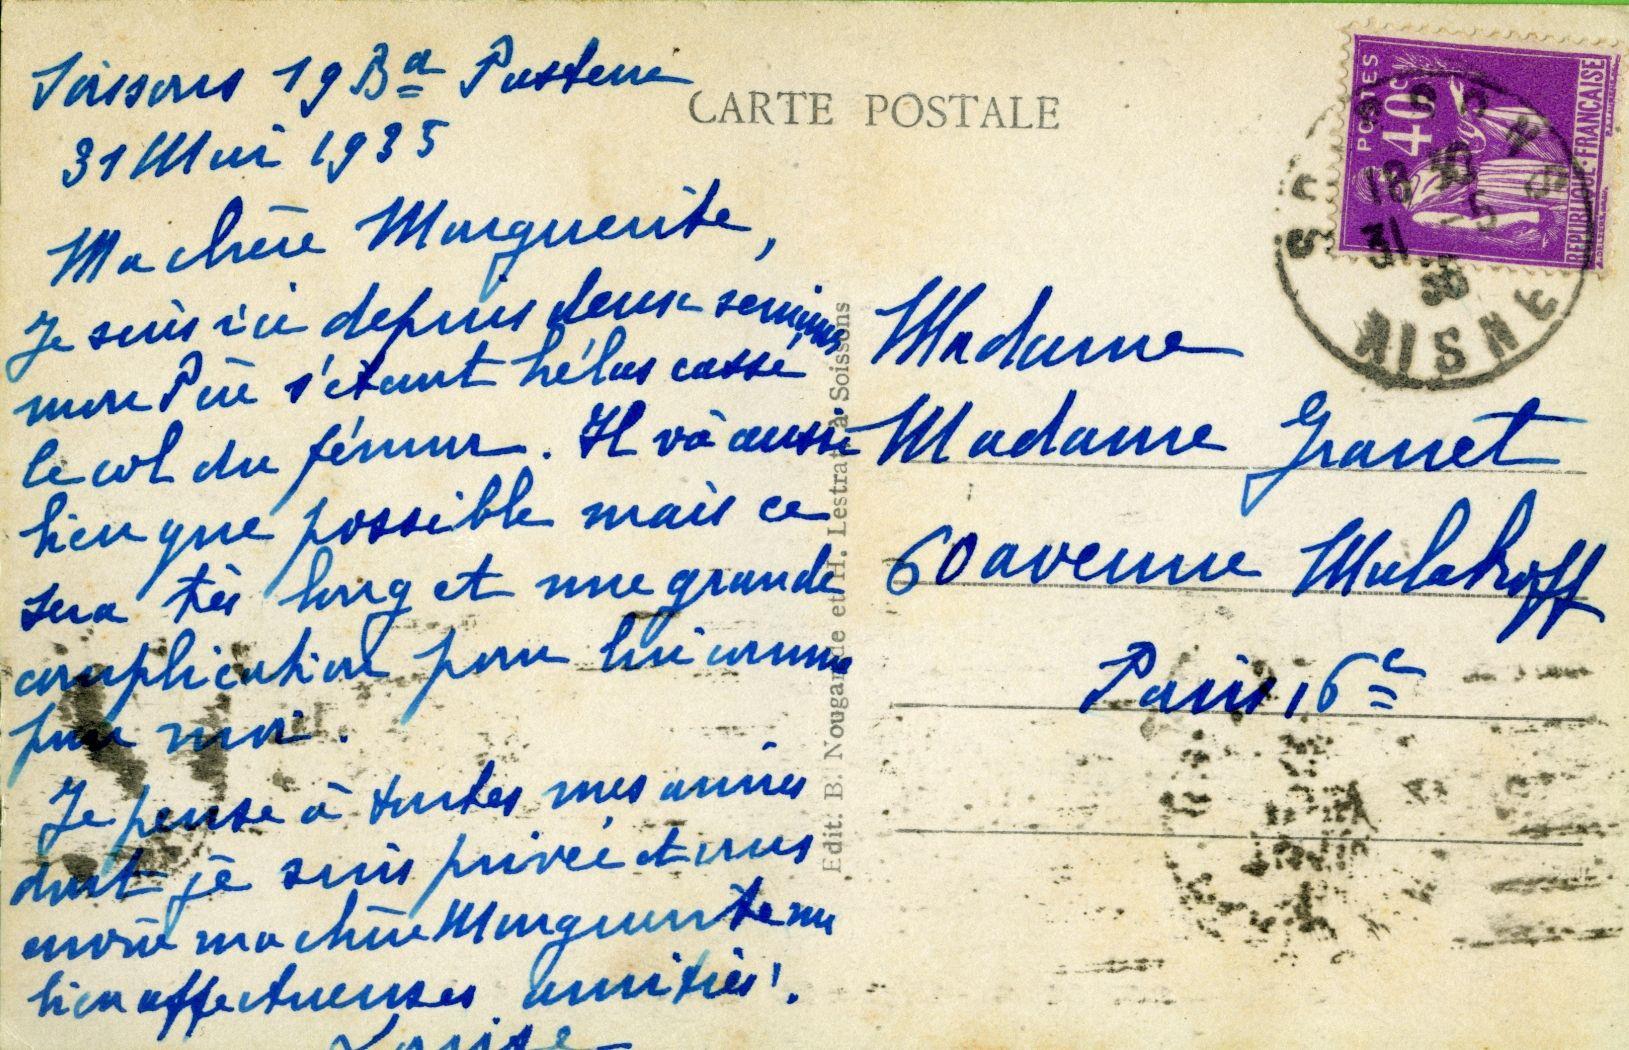 Soissons 19 Bd Pasteur
31 Mai 1935
Ma chère Marguerite,
Je suis ici depuis deux semaines
mon Père s'étant hélas cassé
le col du fémur. Il va aussi
bien que possible mais ce
sera très long et une grande
complication pour lui comme
pour moi.
Je pense à toutes mes amies
dont je suis privée et vous
envoie ma chère Marguerite mes
bien affectueuses amitiés.
Louise
CARTE POSTALE
Edit. B. Nougarède et H. Lestrat, à Soissons
POSTES
40c
REPUBLIQUE·FRANÇAISE
SOISSONS
18 30
31 -5
AISNE
Madame
Madame Granet
60 avenue Malakoff
Paris 16e